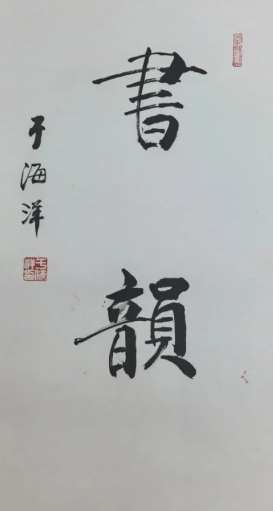 書韻
于海洋